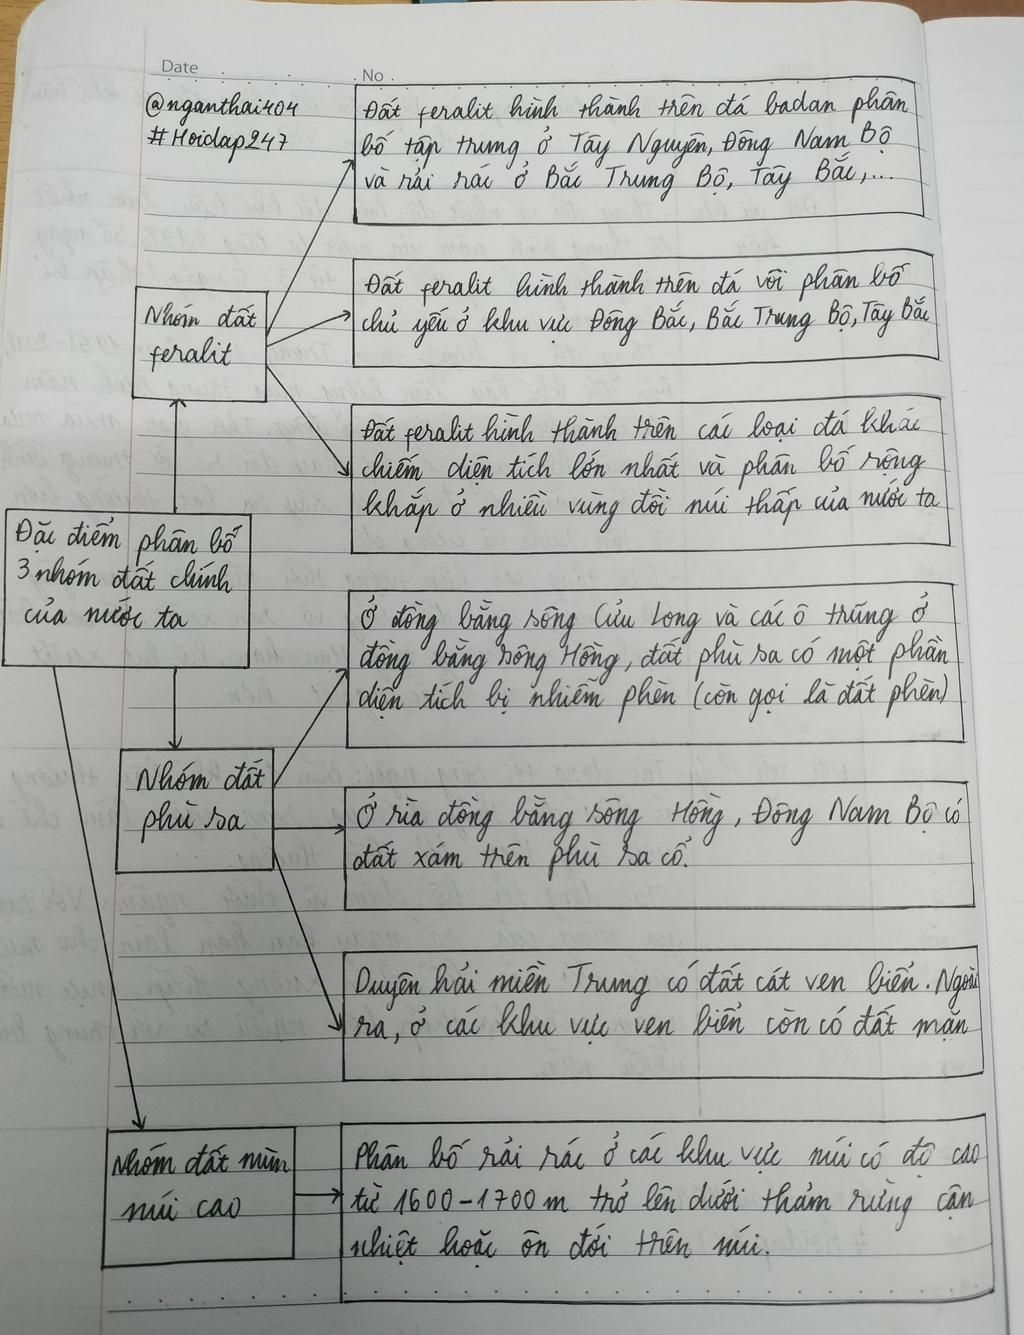 Date
No.
@nganthai404
#Hoidap247
Đất feralit hình thành trên đá badan phân
bố tập trung ở Tây Nguyên, Đông Nam Bộ
và rải rác ở Bắc Trung Bộ, Tây Bắc,...
Đất feralit hình thành trên đá vôi phân bố
chủ yếu ở khu vực Đông Bắc, Bắc Trung Bộ, Tây Bắc
Nhóm đất
feralit
Đất feralit hình thành trên các loại đá khác
chiếm diện tích lớn nhất và phân bố rộng
khắp ở nhiều vùng đồi núi thấp của nước ta
Đặc điểm phân bố
3 nhóm đất chính
của nước ta
Ở đồng bằng sông Cửu Long và các ô trũng ở
đồng bằng sông Hồng, đất phù sa có một phần
diện tích bị nhiễm phèn (còn gọi là đất phèn)
Nhóm đất
phù sa
Ở rìa đồng bằng sông Hồng, Đông Nam Bộ có
đất xám trên phù sa cổ.
Duyên hải miền Trung có đất cát ven biển. Ngoài
ra, ở các khu vực ven biển còn có đất mặn
Nhóm đất mùn
núi cao
Phân bố rải rác ở các khu vực núi có độ cao
từ 1600-1700m trở lên dưới thảm rừng cận
nhiệt hoặc ôn đới trên núi.